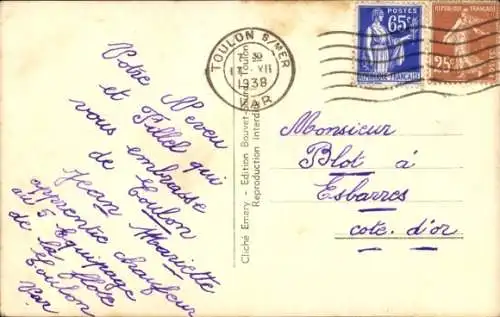 Votre Neveu
et Fillel qui
vous embrasse
de Toulon
Jean Mariette
apprentie chauffeur
au 5 Equipage
de la flote
Toulon
Var
TOULON S/MER
VII
1938
VAR
65c
POSTES
REPUBLIQUE FRANÇAISE
25c
Cliché Emery - Edition Bouvet-Toulon
Reproduction Interdite
Monsieur
Blot à
Esbarres
cote. d'or